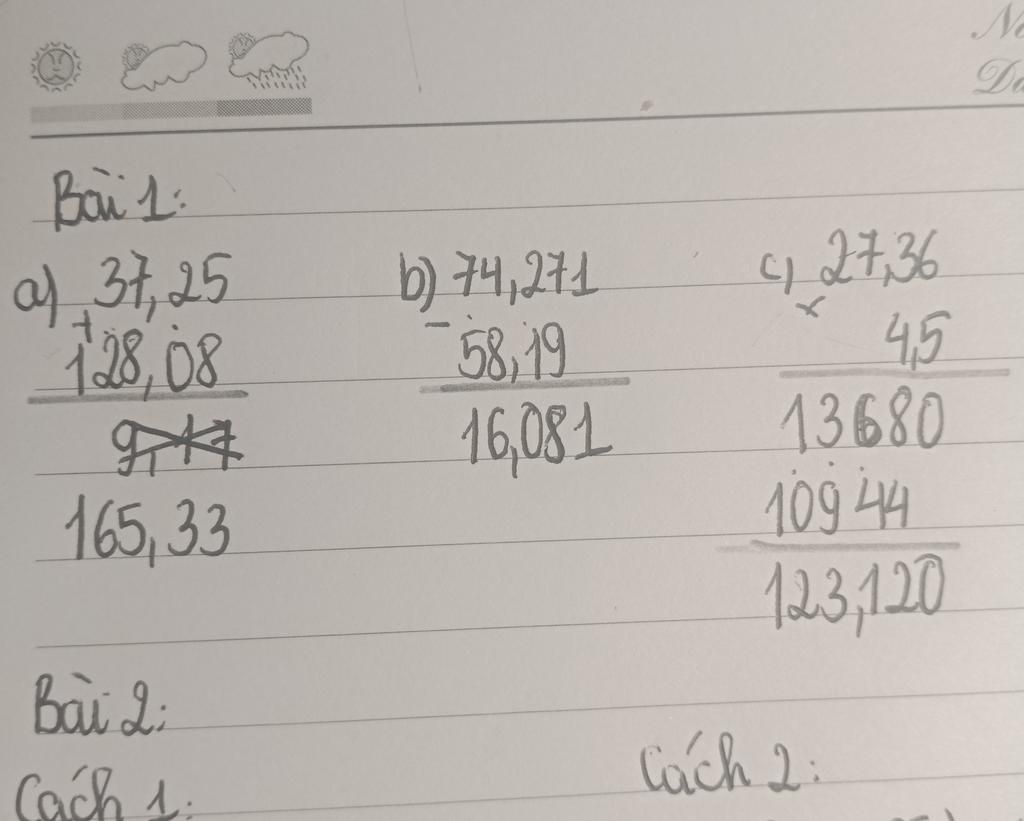 No
Da
Bài 1:
a) 37,25 b) 74,271 c) 27,36
+ - x
128,08 58,19 4,5
9,17 16,081 13680
165,33 10944
123,120
Bài 2:
Cách 1: Cách 2: